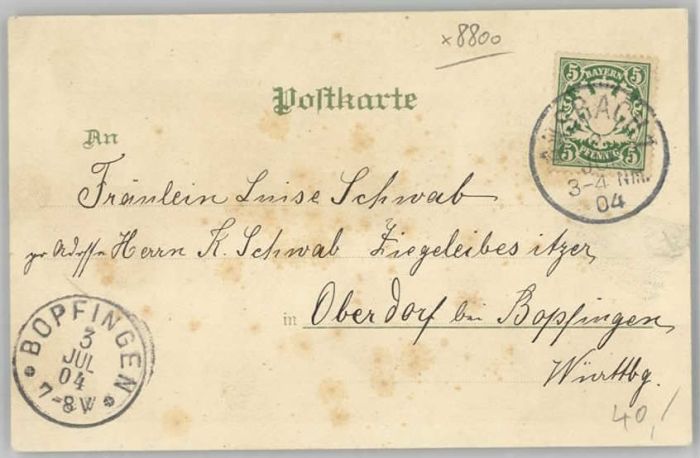 x8800
5 BAYERN 5
5 PFENNIG 5
ANSBACH 1
3-4 NM.
04
Postkarte
An
Fräulein Luise Schwab
pr Adresse Herrn K. Schwab Ziegeleibesitzer
in Oberdorf bei Bopfingen
Württbg.
BOPFINGEN
3
JUL
04
7-8V
40,/